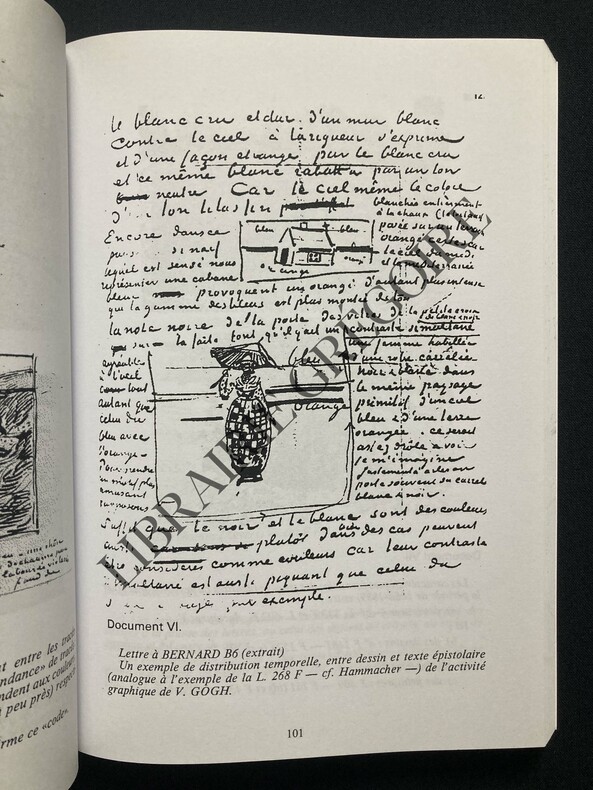 12
le blanc cru et dur d'un mur blanc
contre le ciel à la rigueur s'exprime
et d'une façon étrange par le blanc cru
et ce même blanc rabattu par un ton
neutre Car le ciel même le colore
d'un ton lilas fin
Encore dans ce
si naïf
lequel est sensé nous
représenter une cabane
bleu bleu
orangé orangé
blanchie entièrement
à la chaux
posée sur un terrain
orangé certes car
le ciel du midi
et la méditerranée
bleue provoquent un orangé d'autant plus intense
que la gamme des bleus est plus montée de ton
la note noire de la porte des vitres de la petite croix
sur le faîte font qu'il y ait un contraste simultané
de blanc et noir
agréable
à l'œil
tout
autant que
celui du
bleu avec
l'orangé
Pour prendre
un motif plus
amusant
supposons
bleu
orangé
une femme habillée
d'une robe carrelée
noir et blanc dans
le même paysage
primitif d'un ciel
bleu et d'une terre
orangée ce serait
assez drôle à voir
je m'imagine
justement à Arles on
porte souvent du carrelé
blanc & noir.
Suffit que le noir et le blanc sont des couleurs
aussi plutôt dans des cas peuvent
être considérés comme couleurs car leur contraste
simultané est aussi piquant que celui du
par exemple.
LIBRAIRIE GRÉGOIRE
Document VI.
Lettre à BERNARD B6 (extrait)
Un exemple de distribution temporelle, entre dessin et texte épistolaire
(analogue à l'exemple de la L. 268 F — cf. Hammacher —) de l'activité
graphique de V. GOGH.
101
entre les tracés
ndance» de tracés
ndent aux couleurs
peu près) respec
rme ce «code»